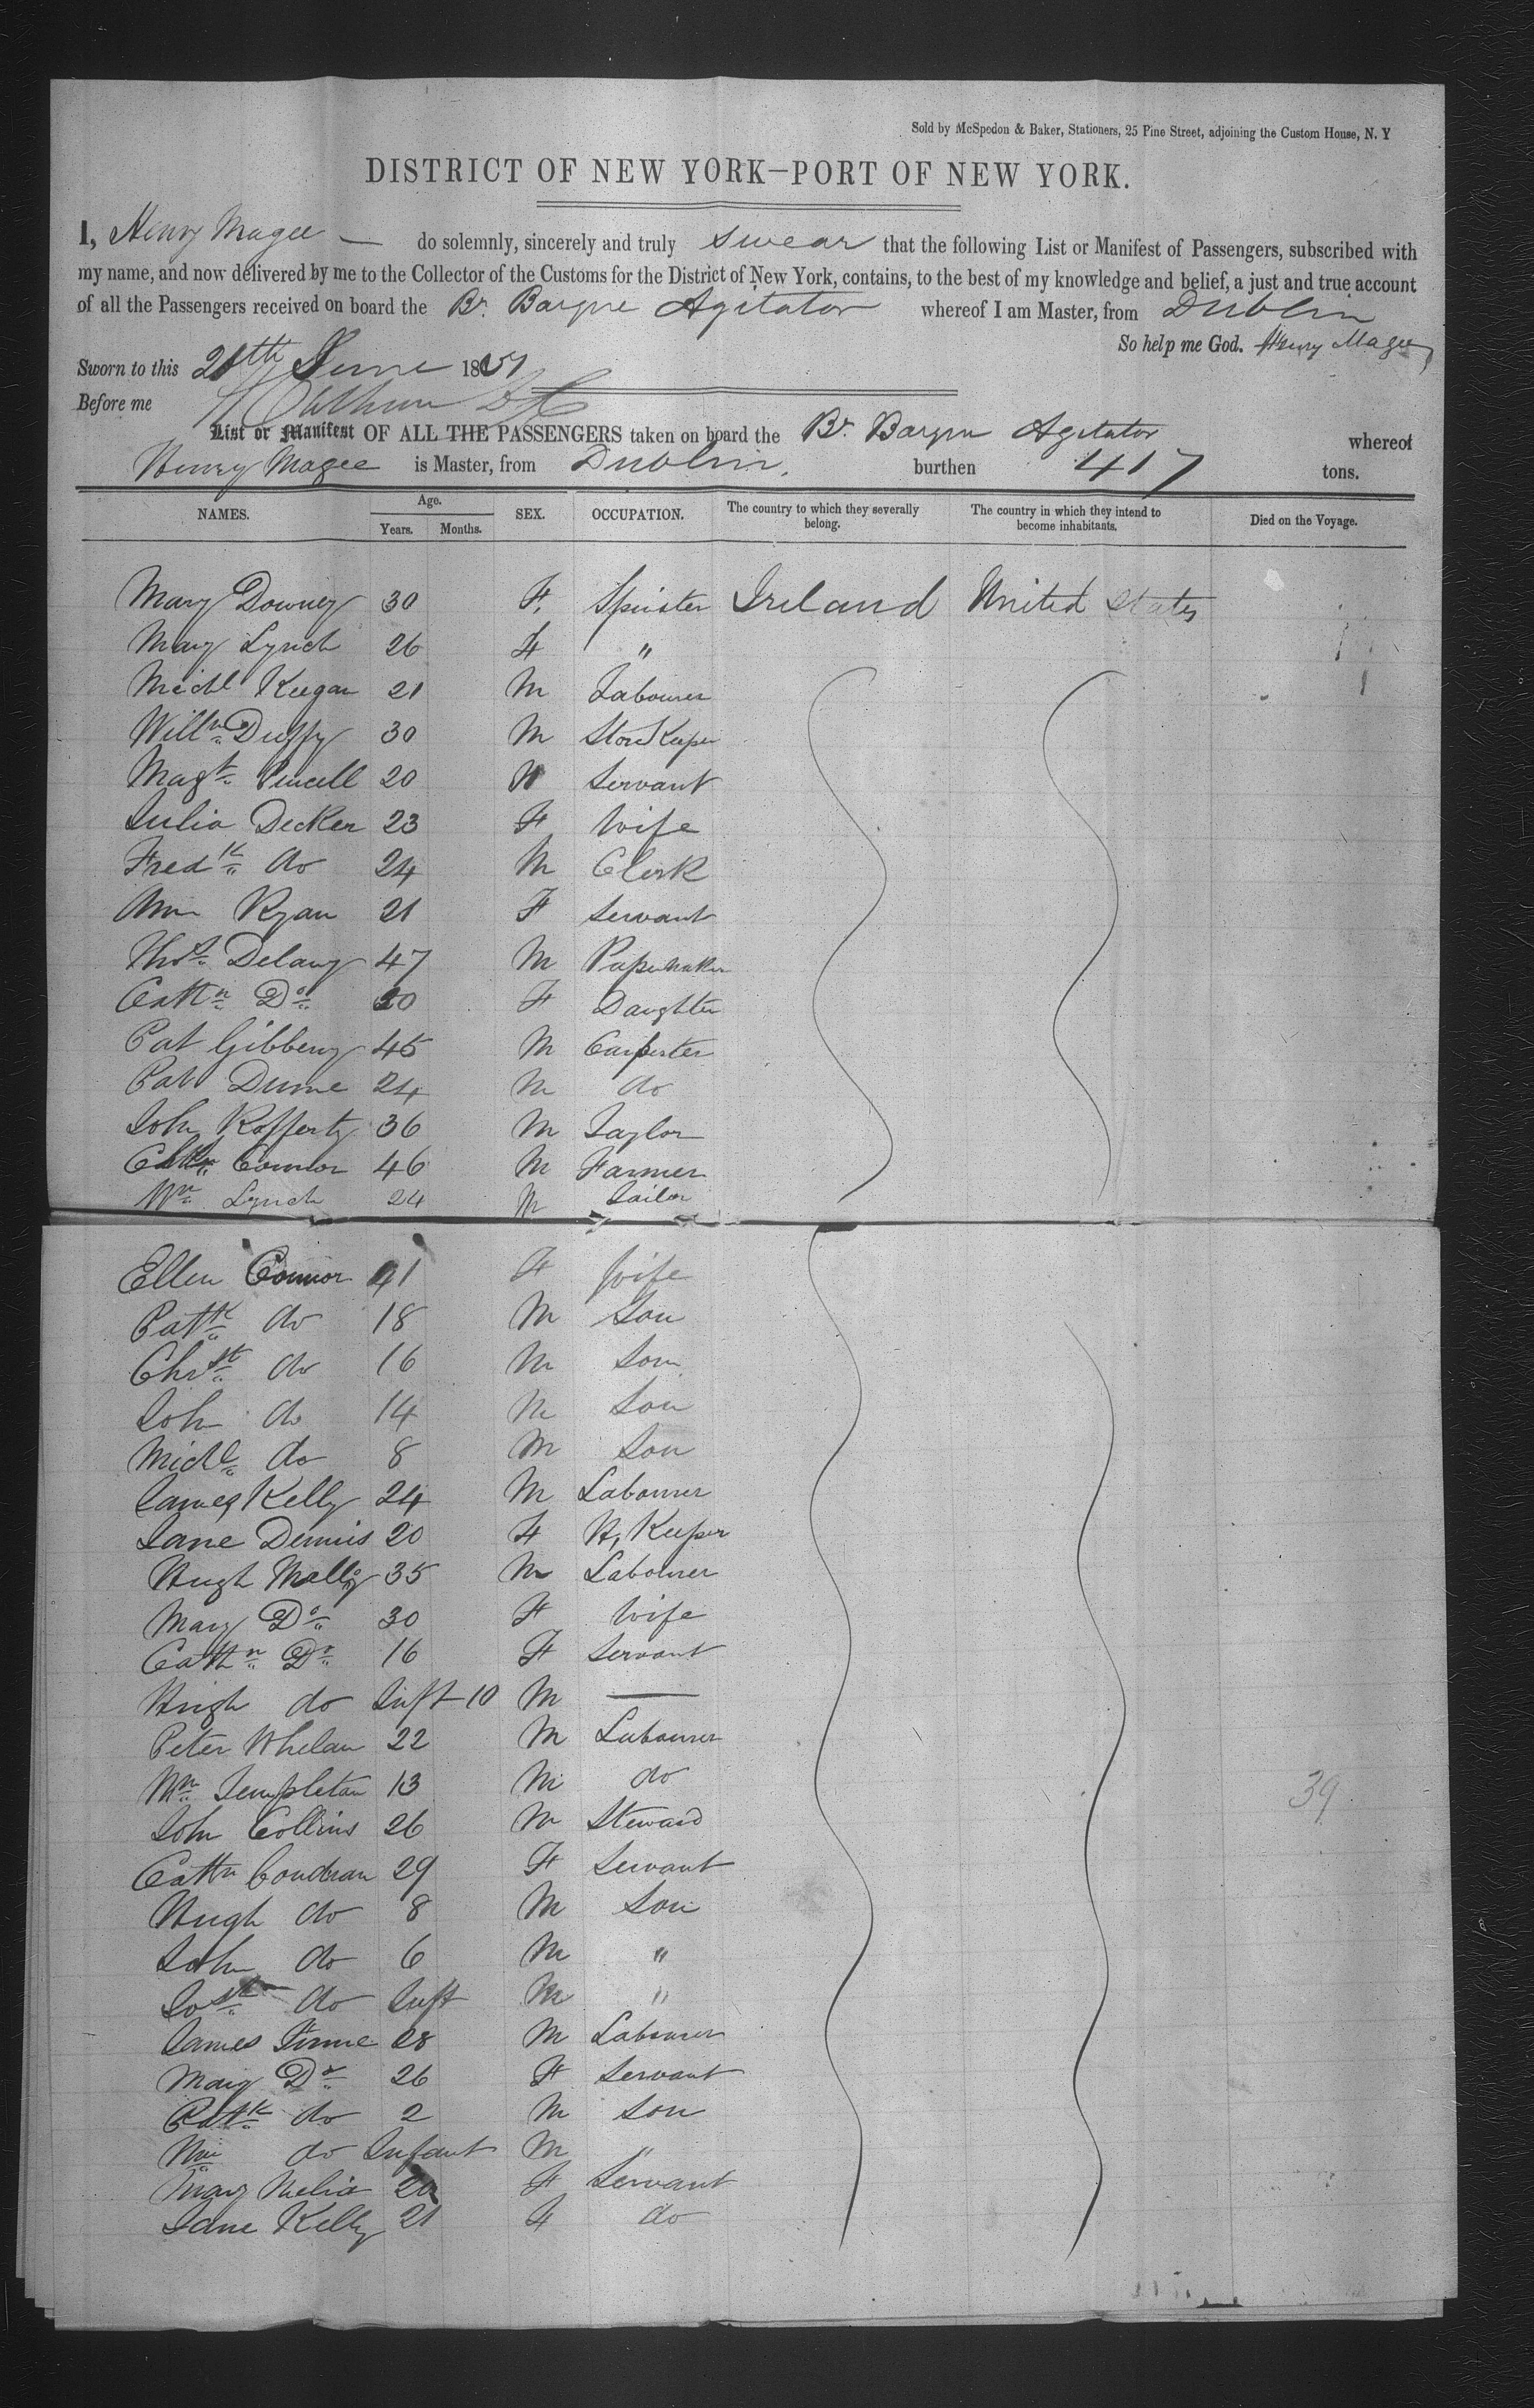 Sold by McSpedon & Baker, Stationers, 25 Pine Street, adjoining the Custom House, N. Y
DISTRICT OF NEW YORK—PORT OF NEW YORK.
I, Henry Magee — do solemnly, sincerely and truly swear that the following List or Manifest of Passengers, subscribed with
my name, and now delivered by me to the Collector of the Customs for the District of New York, contains, to the best of my knowledge and belief, a just and true account
of all the Passengers received on board the Br. Barque Agitator whereof I am Master, from Dublin
So help me God. Henry Magee
Sworn to this June 1851
Before me
List or Manifest OF ALL THE PASSENGERS taken on board the Br. Barque Agitator whereof
Henry Magee is Master, from Dublin, burthen 417 tons.
NAMES. Age. Years. Months. SEX. OCCUPATION. The country to which they severally belong. The country in which they intend to become inhabitants. Died on the Voyage.
Mary Downey 30 F. Spinster Ireland United States
Mary Lynch 26 F "
Michl Keegan 21 M Labourer
Willm Duffy 30 M Store Keeper
Magt Purcell 20 Servant
Julia Decker 23 F Wife
Fredk do 24 M Clerk
Ann Ryan 21 F Servant
Thos Delany 47 M Papermaker
Cathn Do F Daughter
Pat Gibbeny 45 M Carpenter
Pat Dunne 24 M do
John Rafferty 36 M Taylor
Connor 46 M Farmer
Wm Lynch 24 M Tailor
Ellen Connor 41 F Wife
Patk do 18 M Son
Chrst do 16 M Son
John do 14 M Son
Michl do 8 M Son
James Kelly 24 M Labourer
Jane Dennis 20 F H. Keeper
Hugh Molloy 35 M Labourer
Mary Do 30 F Wife
Cathn Do 16 F Servant
Hugh do Inft 10 M —
Peter Whelan 22 M Labourer
Wm Templeton 13 M do
John Collins 26 M Steward
Cathn Condran 29 F Servant
Hugh do 8 M Son
John do 6 M "
do Inft M "
James Finne 28 M Labourer
Mary Do 26 F Servant
Patk do 2 M Son
Wm do Infant M "
Mary Melia F Servant
Jane Kelly 21 F do
39